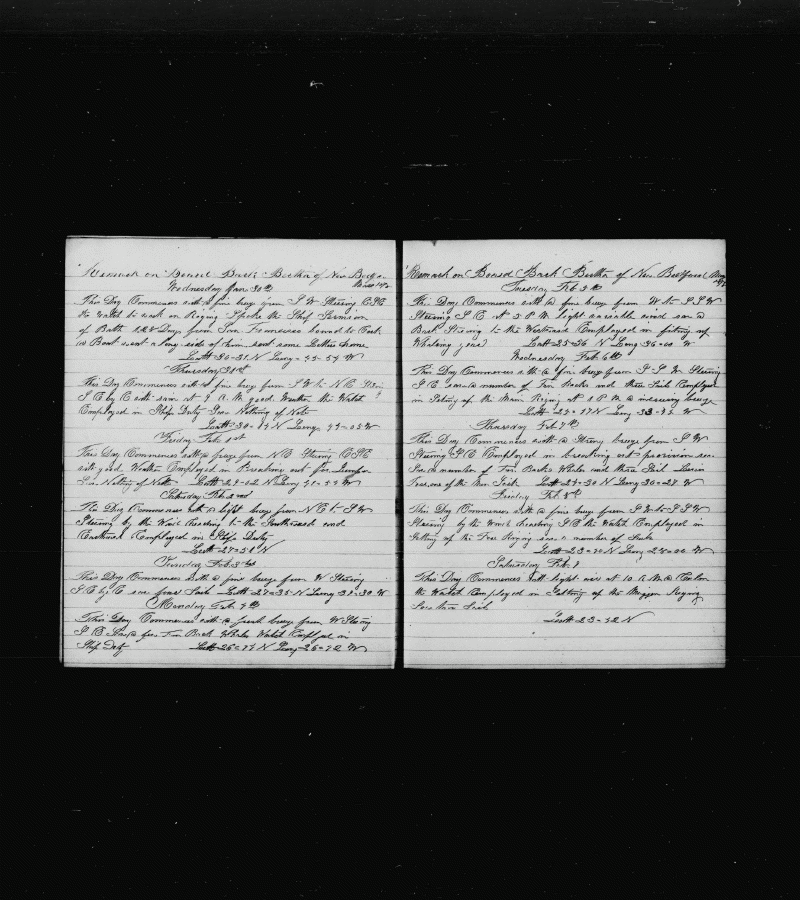 Remark on Board Bark Bertha of New Bedford
Wednesday Jan 30th
This Day Commences with @ fine breeze from S W Steering E S E
the Watch to work on Riging Spoke the Ship
of Bath 122 Days from San Francisco bound to Cork
@ Boat went a long side of him sent some Letters home
Latt 30-31 N Long 45-54 W
Thursday 31st
This Day Commences with @ fine breeze from S W to N E
S E by E with rain at 9 A.M. good Weather the Watch
Employed in Ships Duty Saw Nothing of Note
Latt 30- N Long
Friday Feb 1st
This Day Commences with @ breeze from N E Steering E S E
with good Weather Employed in Breaking out for
Saw Nothing of Note Latt 29-02 N Long 41-44 W
Saturday Feb 2nd
This Day Commences with @ light breeze from N E to S W
Steering by the Wind heading to the Southward and
Eastward Employed in Ships Duty
Latt 27-51 N
Feb 3rd
This Day Commences with @ fine breeze from W Steering
S E by E saw four Sail Latt 27-35 N Long 38-30 W
Monday Feb 4th
This Day Commences with @ fresh breeze from W Steering
S E Saw @ few Fin Back Whales Watch Employed in
Ships Duty Latt 26-44 N Long 36-42 W
Remark on Board Bark Bertha of New Bedford
Tuesday Feb 5th
This Day Commences with @ fine breeze from W to S S W
Steering S E at 5 P M light variable wind saw @
Bark Steering to the Westward Employed in fiting up
Whaling gear Latt 25-36 N Long 36-00 W
Wednesday Feb 6th
This Day Commences with @ fine breeze from S S W Steering
S E saw @ number of Fin Backs and three Sail Employed
in Seting up the Main Riging at 1 P M @ increasing breeze
Latt 24-57 N Long 33-42 W
Thursday Feb 7th
This Day Commences with @ Strong breeze from S W
Steering S E Employed in breaking out provision saw
Saw @ number of Fin Backs Whales and three Sail
one of the Men Sick Latt 24-30 N Long 30-27 W
Friday Feb 8th
This Day Commences with @ fine breeze from S W to S S W
Steering by the Wind heading S E the Watch Employed in
Seting up the Fore Riging saw @ number of Sails
Latt 23-40 N Long 28-00 W
Saturday Feb 9
This Day Commences with light airs at 10 A M @ Calm
the Watch Employed in Setting up the Mizzen Riging
Saw two Sail
Latt 23-12 N